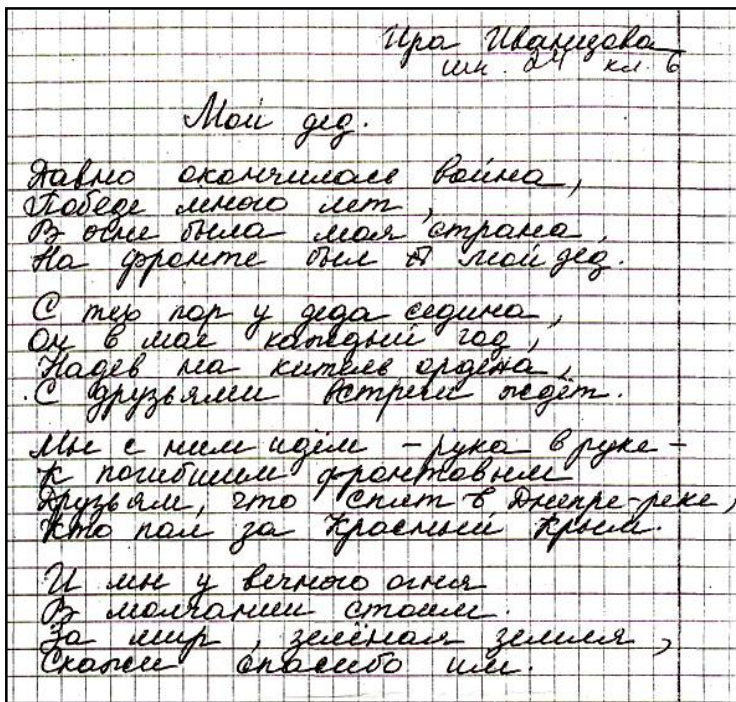 Ира Иванцова
шк. 24 кл. 6
Мой дед.
Давно окончилась война,
Победе много лет,
В огне была моя страна,
На фронте был и мой дед.
С тех пор у деда седина,
Он в мае каждый год,
Надев на китель ордена,
С друзьями встречи ждёт.
Мы с ним идём - рука в руке -
К погибшим фронтовым
Друзьям, что спят в Днепре-реке,
Кто пал за Красный Крым.
И мы у вечного огня
В молчании стоим.
За мир, зелёная земля,
Скажи спасибо им.